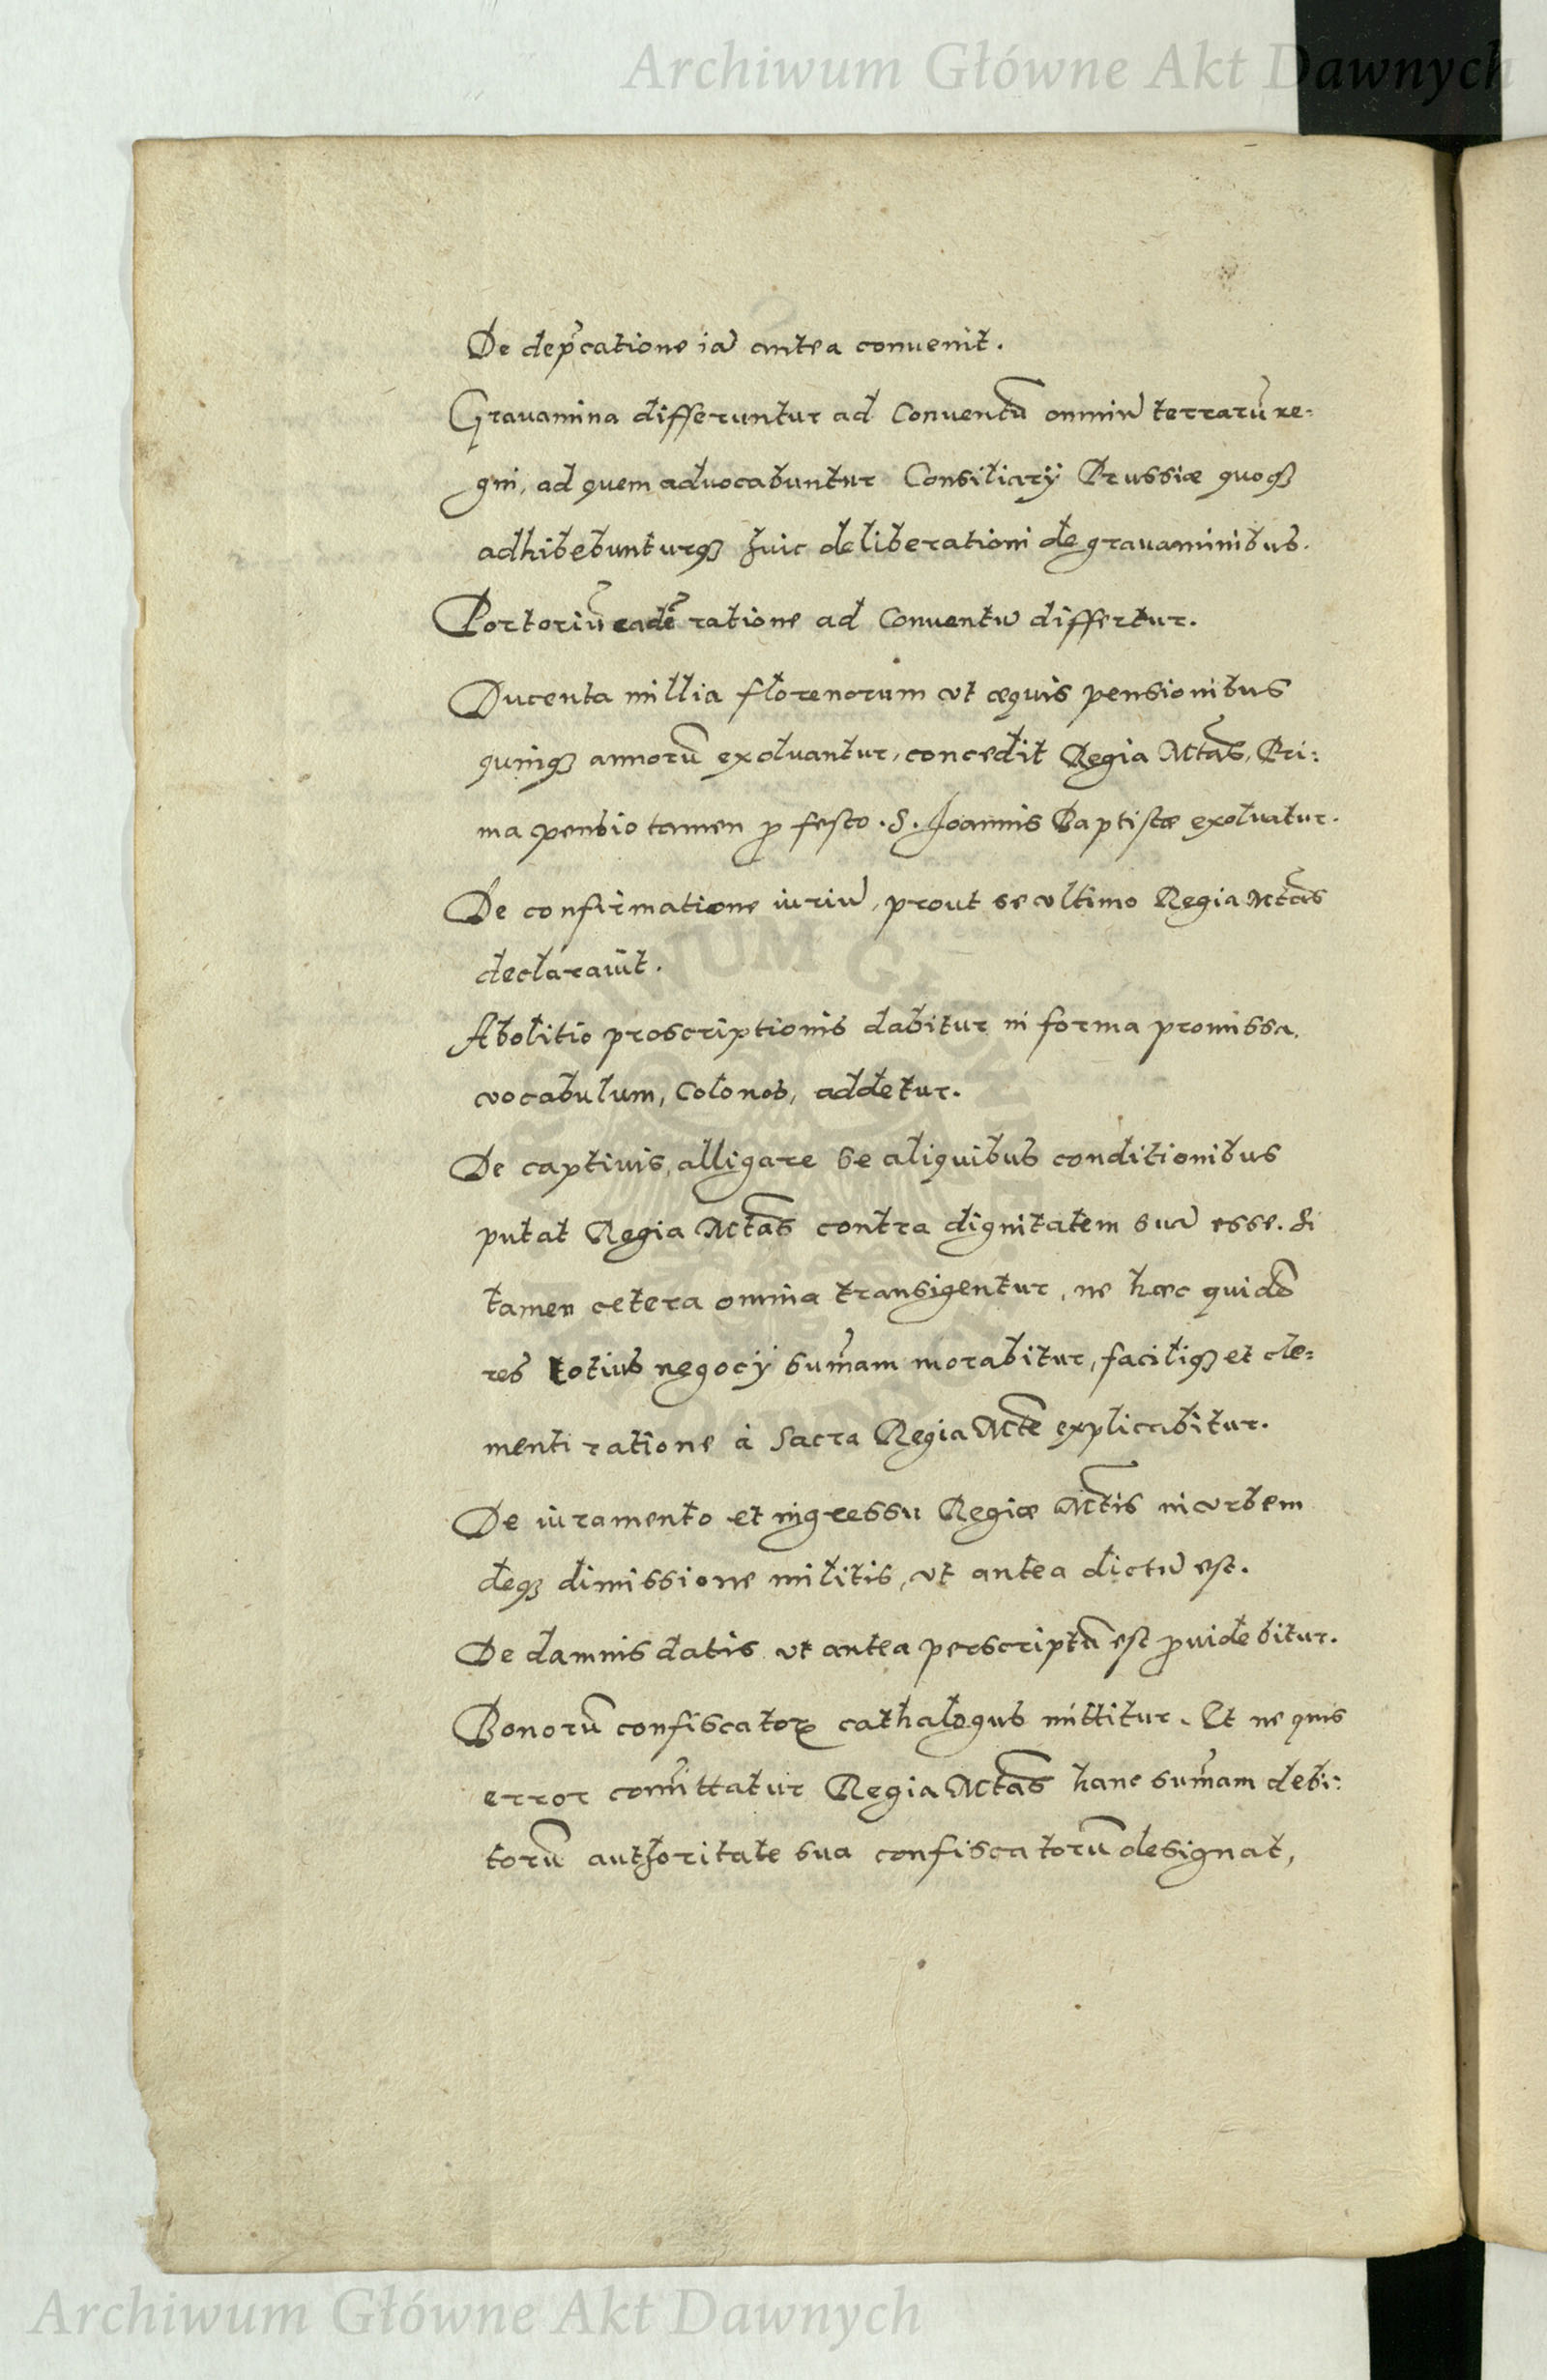 Archiwum Główne Akt Dawnych
De dep̃catione iã antea conuenit.
Grauamina differuntur ad Conuentũ omniũ terrarũ re=
gni, ad quem aduocabuntur Consiliarÿ Prussiæ quoqꝫ
adhibebunturqꝫ huic deliberationi de grauaminibus.
Portoriũ eadẽ ratione ad Conuentũ differtur.
Ducenta millia florenorum vt æquis pensionibus
quinqꝫ annorũ exoluantur, concedit Regia Mtãs, Pri:
ma pensio tamen ꝓ festo .S. Joannis Baptistæ exoluatur.
De confirmatione iuriũ, prout se vltimo Regia Mtãs
declarauit.
Abolitio proscriptionis dabitur in forma promissa,
vocabulum, Colonos, addetur.
De captiuis, alligare se aliquibus conditionibus
putat Regia Mtãs contra dignitatem suã esse. Si
tamen cetera omnia transigentur, ne hæc quidẽ
res totius negocÿ sum̃am morabitur, faciliqꝫ et cle=
menti ratione à Sacra Regia Mtẽ explicabitur.
De iuramento et ingressu Regiæ Mtĩs in vrbem
deqꝫ dimissione militis, vt antea dictũ est.
De damnis datis vt antea perscriptũ est ꝓuidebitur.
Bonorũ confiscatorꝝ cathalogus mittitur. Et ne quis
error com̃ittatur Regia Mtãs hanc sum̃am debi:
torũ authoritate sua confiscatorũ designat,
Archiwum Główne Akt Dawnych